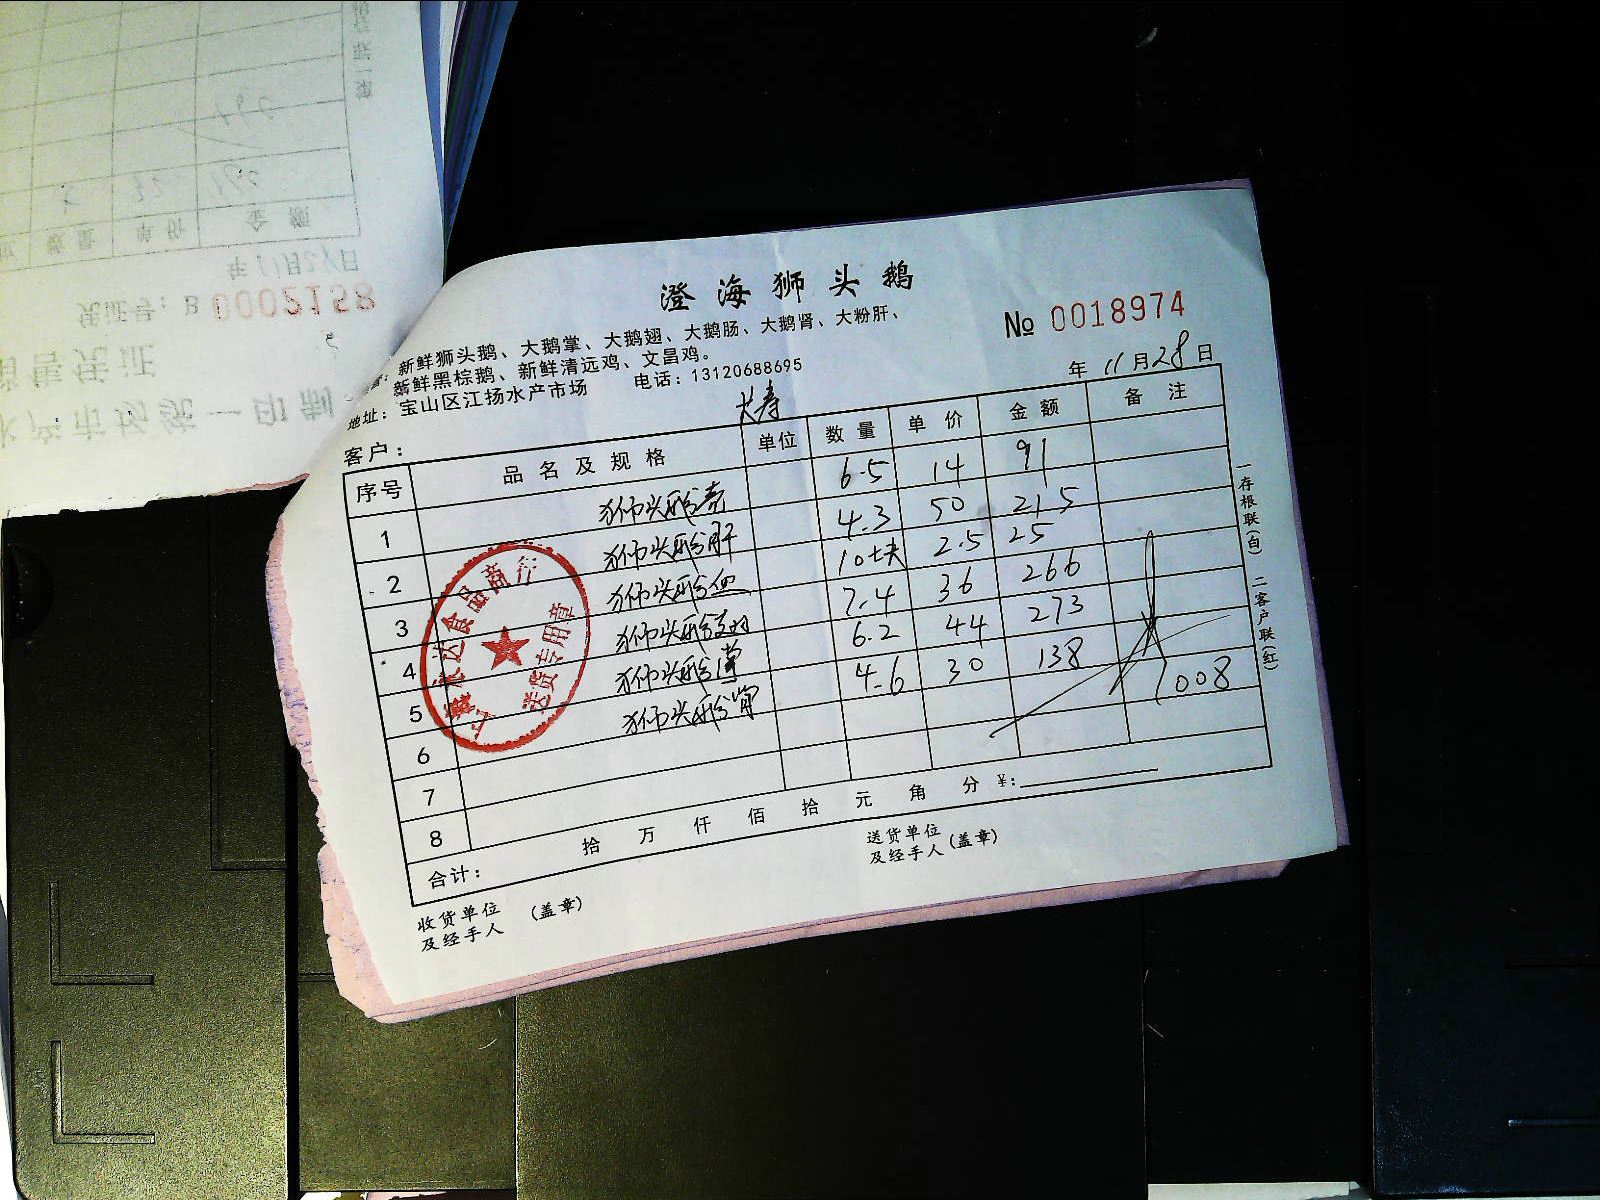 澄海狮头鹅
№ 0018974
新鲜狮头鹅、大鹅掌、大鹅翅、大鹅肠、大鹅肾、大粉肝、
新鲜黑棕鹅、新鲜清远鸡、文昌鸡。
地址：宝山区江扬水产市场 电话：13120688695
年 11 月 28 日
客户：
序号 品名及规格 单位 数量 单价 金额 备注
1 狮头鹅 6.5 14 91
2 狮头鹅肝 4.3 50 215
3 狮头鹅血 10块 2.5 25
4 狮头鹅翅 7.4 36 266
5 狮头鹅掌 6.2 44 273
6 狮头鹅肾 4.6 30 138
1008
7
8
合计： 拾 万 仟 佰 拾 元 角 分 ￥：
收货单位
及经手人 (盖章)
送货单位
及经手人 (盖章)
一存根联(白) 二客户联(红)
食品商行
送货专用章
0002158
凭证号：B
年 11月 日
数量 单价 金额
销售凭证
水产市场统一印制